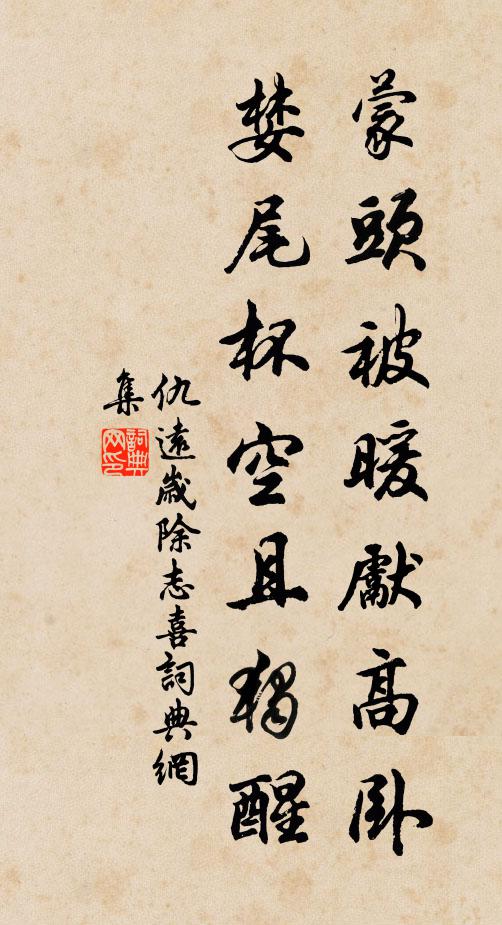 蒙頭被暖獻高卧
婪尾杯空且獨醒
仇遠歲除志喜詞典網
集
詞典
网印